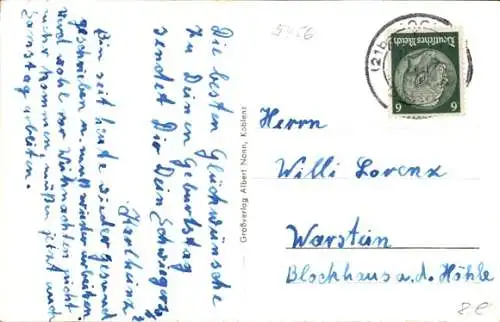 Die besten Glückwünsche
zu Deinen Geburtstag
sendet Dir Dein Schwager
Karlheinz
Bin seit heute wieder gesund
geschrieben u. muß wieder arbeiten
werd wohl vor Weihnachten nicht
mehr kommen müßen jetzt auch
Sonnstag arbeiten.
Großverlag Albert Nonn, Koblenz
5456
(21b
Deutsches Reich
6 6
Herrn
Willi Lorenz
Warstein
Blockhaus a. d. Höhle
8€